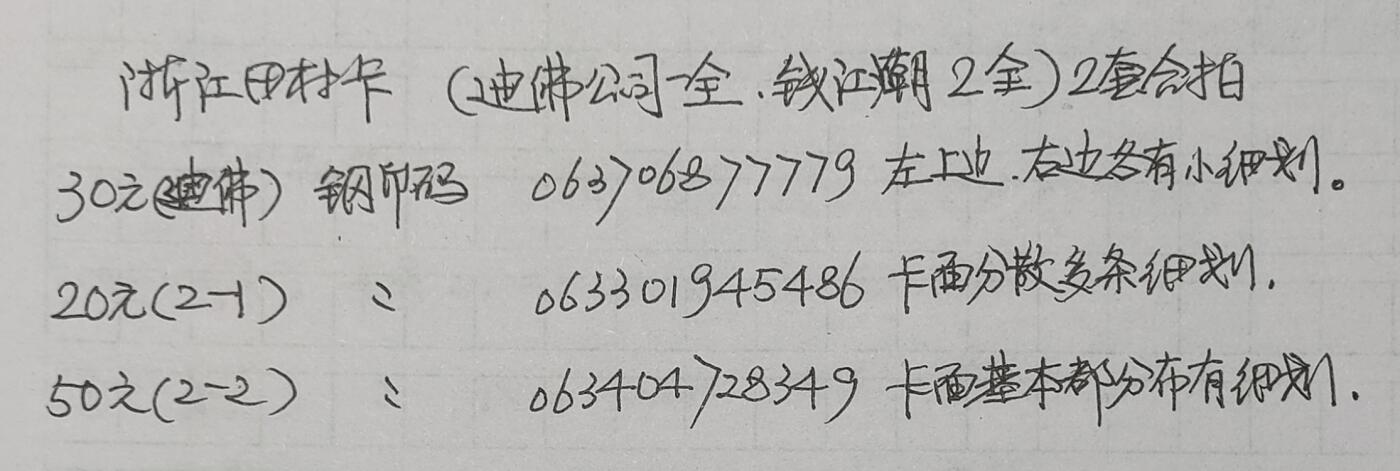 浙江田村卡 (迪佛公司一全.钱江潮2全)2套合拍
30元(迪佛) 钢印码 063706877779 左上边.右边各有小细划。
20元(2-1) 〃 063301945486 卡面分散多条细划.
50元(2-2) 〃 063404728349 卡面基本都分布有细划.